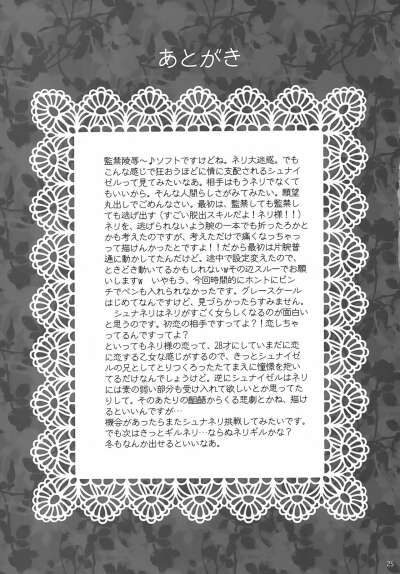 あとがき
監禁陵辱～♪ソフトですけどね。ネリ大迷惑。でも
こんな感じで狂おうほどに情に支配されるシュナイ
ゼルって見てみたいなあ。相手はもうネリでなくて
もいいから。そんな人間らしさがみてみたい。願望
丸出しでごめんなさい。最初は、監禁しても監禁し
ても逃げ出す(すごい脱出スキルだよ！ネリ様！！)
ネリを、逃げられないよう腕の一本でも折ったろかと
かも考えたのですが、考えただけで痛くなっちゃ
って描けんかったとですよ！！だから最初は片腕普
通に動かしてたんだけど。途中で設定変えたので、
ときどき動いてるかもしれないwその辺スルーでお願
いしますw　いやもう、今回時間的にホントにピン
チでペンも入れられなかったです。グレースケール
はじめてなんですけど、見づらかったらすみません。
　シュナネリはネリがすごく女らしくなるのが面白い
と思うのです。初恋の相手ですってよ？！恋しちゃ
ってるんですってよ？
といってもネリ様の恋って、28才にしていまだに恋
に恋する乙女な感じがするので、きっとシュナイゼ
ルの兄としてとりつくろったたてまえに憧憬を抱い
てるだけなんでしょうけど。逆にシュナイゼルはネリに
には素の弱い部分も受け入れて欲しいとか思ってた
りして。そのあたりの齟齬からくる悲劇とかね、描け
るといいんですが…
機会があったらまたシュナネリ挑戦してみたいです。
でも次はきっとギルネリ…ならぬネリギルかな？
冬もなんか出せるといいなあ。
25